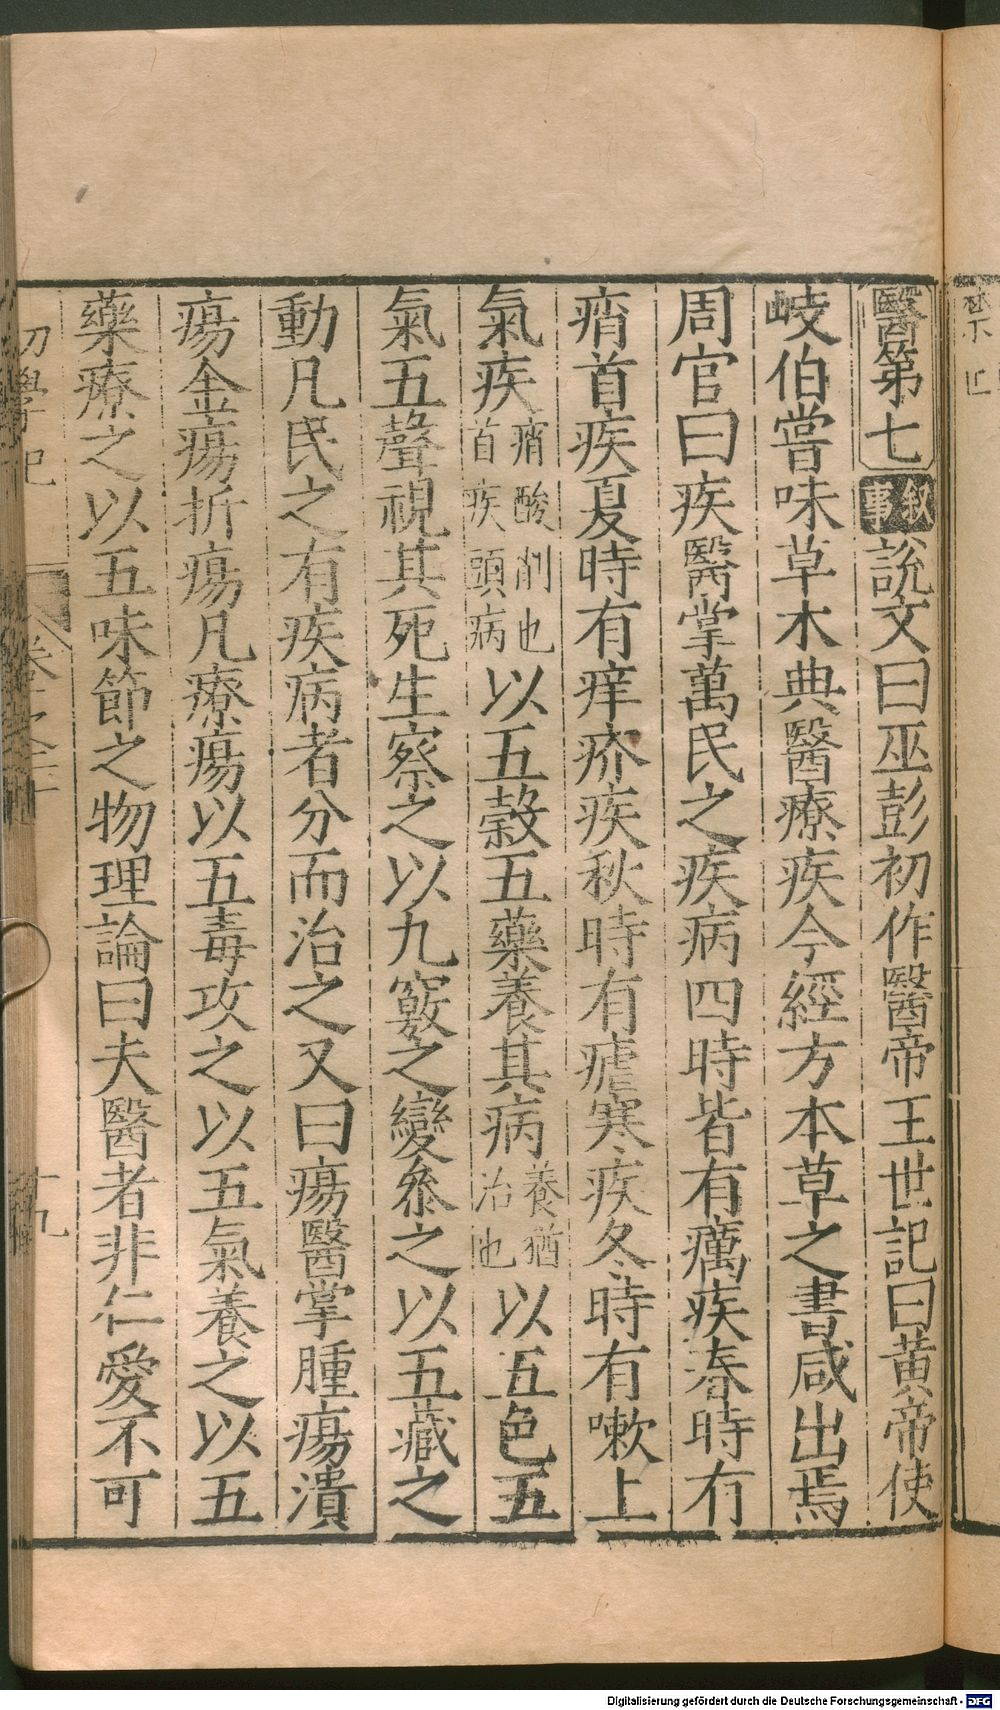 醫第七 敘事 說文曰巫彭初作醫帝王世記曰黃帝使
岐伯嘗味草木典醫療疾今經方本草之書咸出焉
周官曰疾醫掌萬民之疾病四時皆有癘疾春時有
痟首疾夏時有痒疥疾秋時有瘧寒疾冬時有嗽上
氣疾痟酸削也首疾頭病以五穀五藥養其病養猶治也以五色五
氣五聲視其死生察之以九竅之變叅之以五藏之
動凡民之有疾病者分而治之又曰瘍醫掌腫瘍潰
瘍金瘍折瘍凡療瘍以五毒攻之以五氣養之以五
藥療之以五味節之物理論曰夫醫者非仁愛不可
初學記 卷之二十 十九
Digitalisierung gefördert durch die Deutsche Forschungsgemeinschaft - DFG